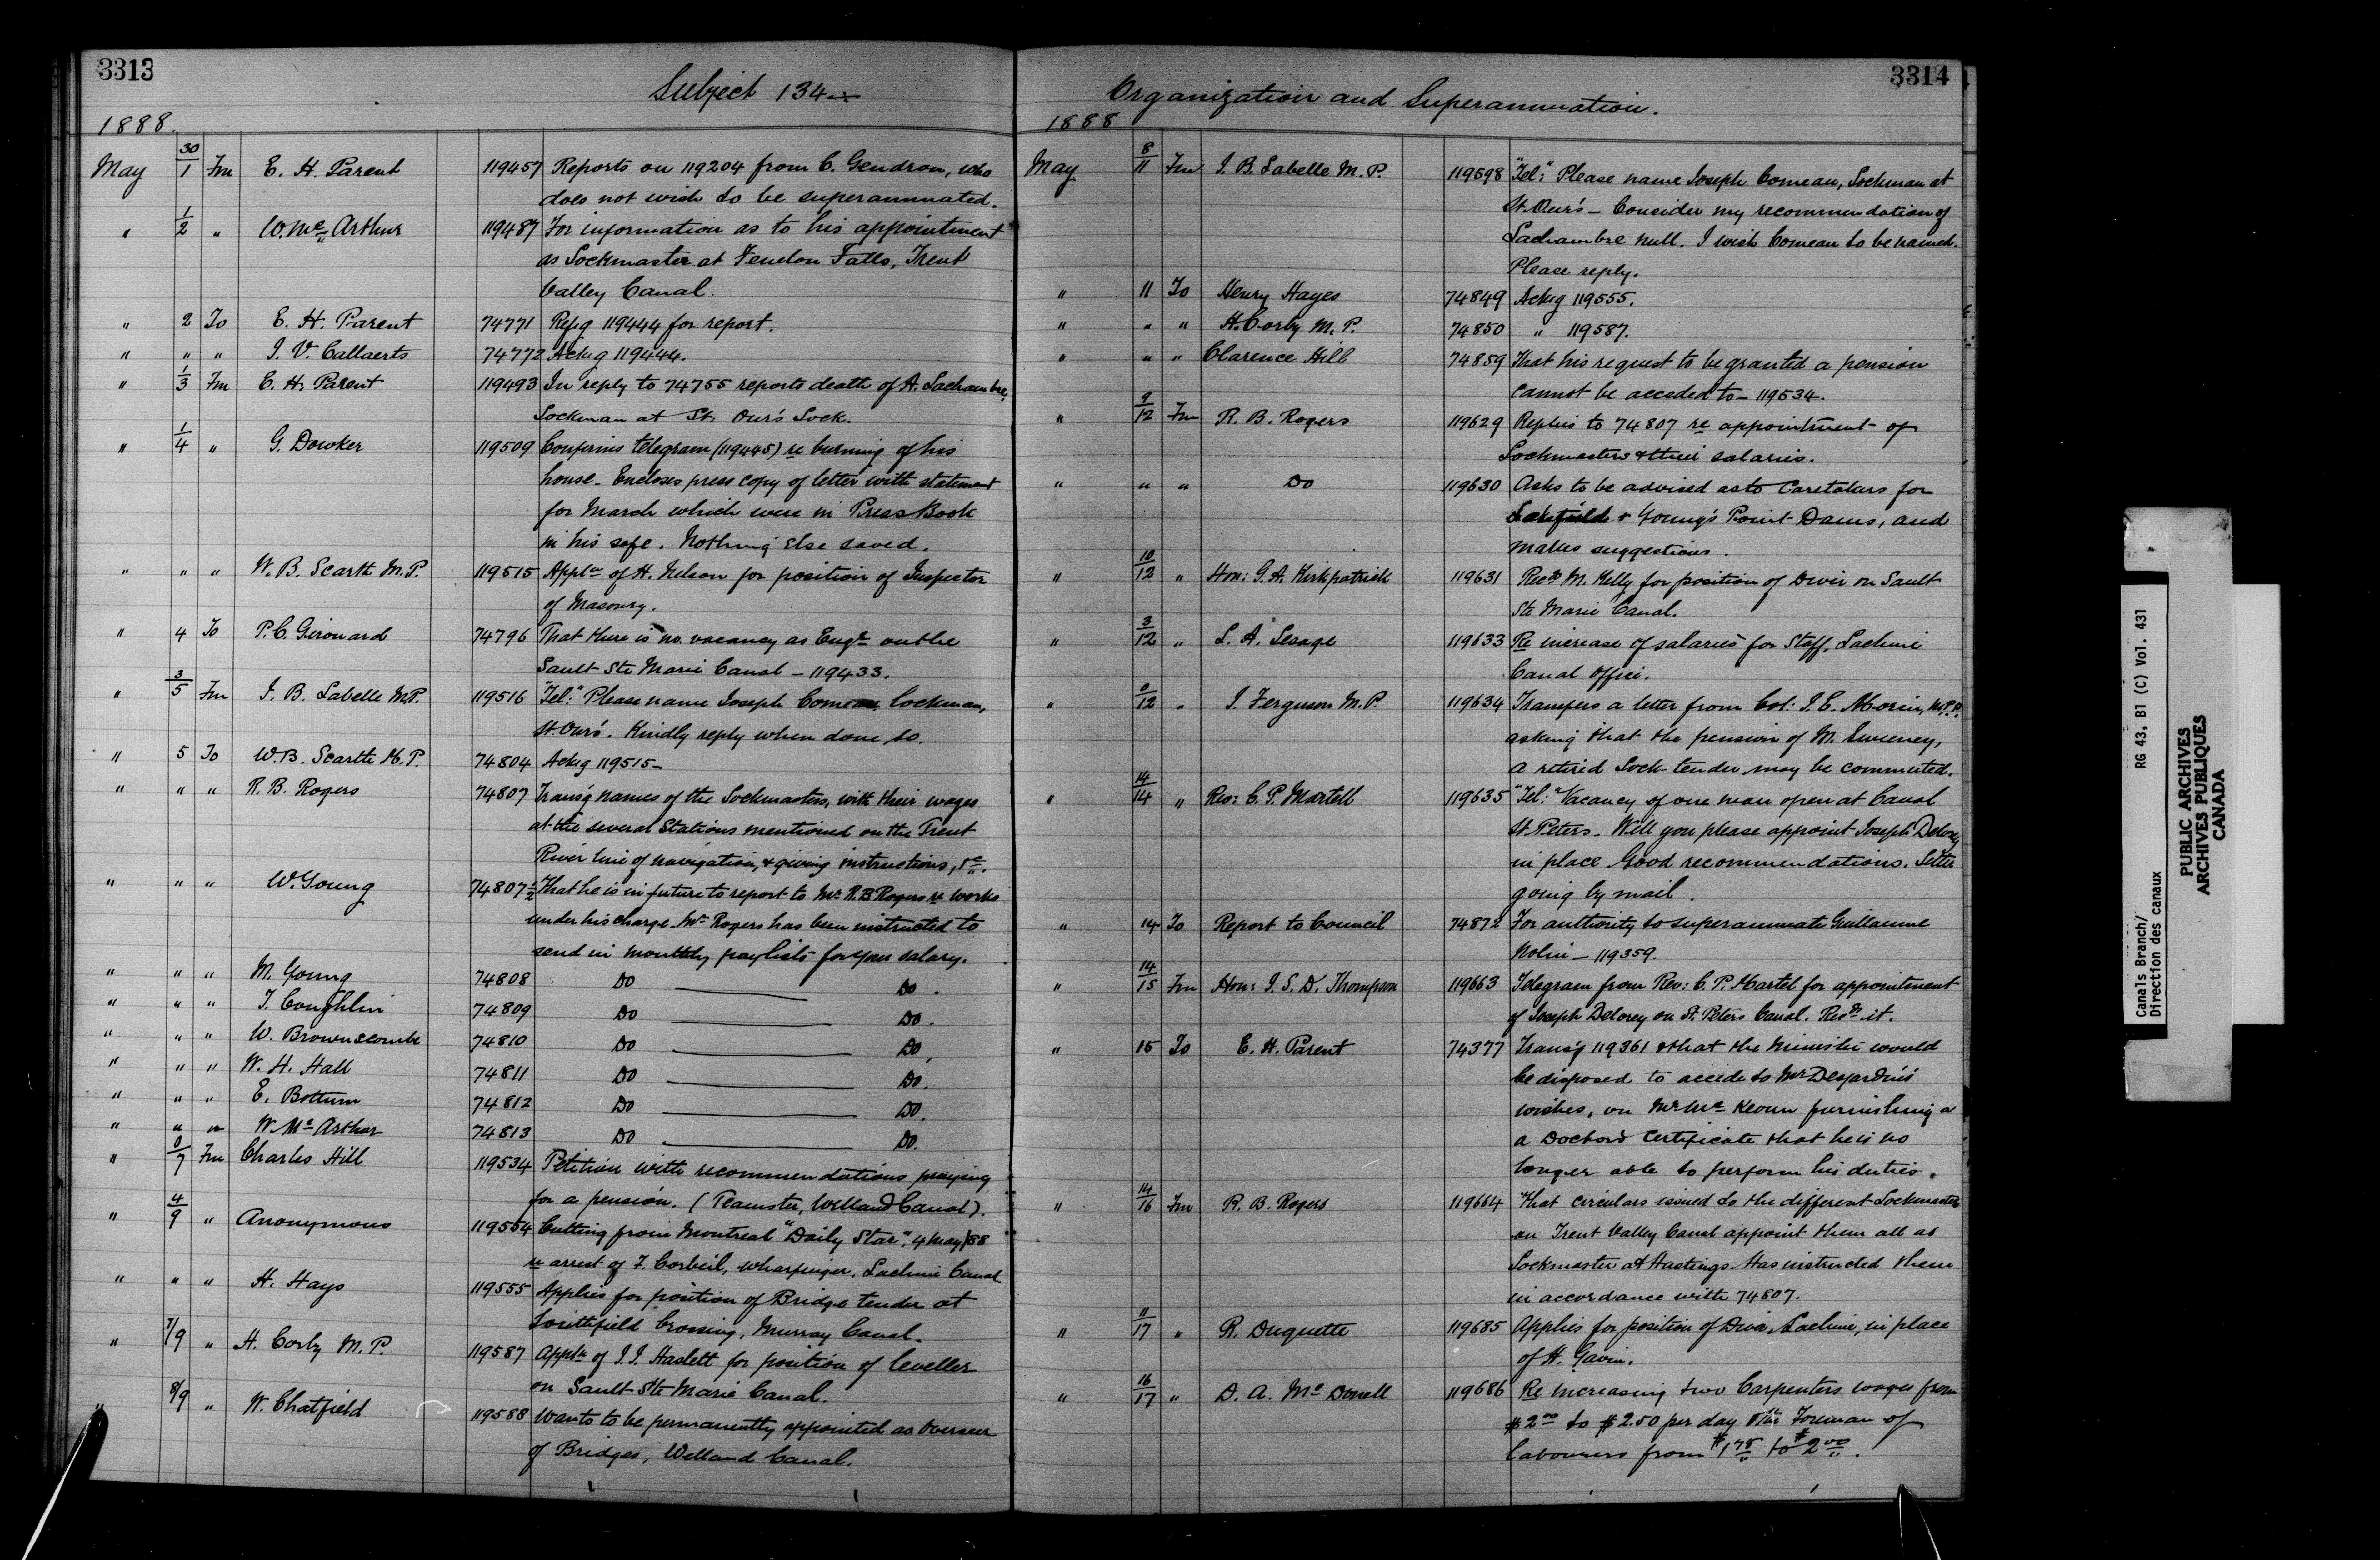 3313
Subject 134
1888.
May 30/1 Fm E. H. Parent 119457 Reports on 119204 from C. Gendron, who
does not wish to be superannuated.
" 1/2 " W. Mc Arthur 119487 For information as to his appointment
as Lockmaster at Fenelon Falls, Trent
Valley Canal.
" 2 To E. H. Parent 74771 Ref'g 119444 for report.
" " " J. V. Callaerts 74772 Ackg 119444.
" 1/3 Fm E. H. Parent 119493 In reply to 74755 reports death of A. Lachambre,
Lockman at St. Our's Lock.
" 1/4 " G. Dowker 119509 Confirms telegram (119445) re burning of his
house. Encloses press copy of letter with statement
for March which were in Press Book
in his safe. Nothing else saved.
" " " W. B. Scarth M.P. 119515 Appln of H. Nelson for position of Inspector
of Masonry.
" 4 To P. C. Girouard 74796 That there is no vacancy as Engr on the
Sault Ste Marie Canal – 119433.
" 3/5 Fm J. B. Labelle M.P. 119516 "Tel:" Please name Joseph Comeau Lockman,
St. Our's. Kindly reply when done so.
" 5 To W. B. Scarth M.P. 74804 Ackg 119515 –
" " " R. B. Rogers 74807 Transg names of the Lockmasters, with their wages
at the several Stations mentioned on the Trent
River line of navigation, & giving instructions, &c.
" " " W. Young 74807 1/2 That he is in future to report to Mr R. B Rogers re works
under his charge. Mr Rogers has been instructed to
send in monthly paylists for your salary.
" " " M. Young 74808 Do Do.
" " " T. Coughlin 74809 Do Do.
" " " W. Brownscombe 74810 Do Do,
" " " W. H. Hall 74811 Do Do.
" " " E. Bottum 74812 Do Do.
" " " W. Mc Arthur 74813 Do Do.
" 0/7 Fm Charles Hill 119534 Petition with recommendations praying
for a pension. (Teamster, Welland Canal).
" 4/9 " Anonymous 119554 Cutting from Montreal "Daily Star", 4 May/88
re arrest of F. Corbeil, wharfinger, Lachine Canal
" " " H. Hays 119555 Applies for position of Bridge tender at
Smithfield Crossing, Murray Canal.
" 7/9 " H. Corby M.P. 119587 Appln of J. J. Haslett for position of leveller
on Sault Ste Marie Canal.
" 8/9 " W. Chatfield 119588 Wants to be permanently appointed as Overseer
of Bridges, Welland Canal.
3314
Organization and Superannuation.
1888
May 8/11 Fm J. B. Labelle M.P. 119598 "Tel:" Please name Joseph Comeau, Lockman at
St. Our's – Consider my recommendation of
Lachambre null. I wish Comeau to be named.
Please reply.
" 11 To Henry Hayes 74849 Ackg 119555.
" " " H. Corby M.P. 74850 " 119587.
" " " Clarence Hill 74859 That his request to be granted a pension
cannot be acceded to – 119534.
" 9/12 Fm R. B. Rogers 119629 Replies to 74807 re appointment of
Lockmasters & their salaries.
" " " Do 119630 Asks to be advised as to Caretakers for
Lakefield & Young's Point Dams, and
makes suggestions.
" 10/12 " Hon: G. A. Kirkpatrick 119631 Recds M. Kelly for position of Diver on Sault
Ste Marie Canal.
" 3/12 " L. A. Lesage 119633 Re increase of salaries for Staff, Lachine
Canal Office.
" 0/12 " J. Ferguson M.P. 119634 Transfers a letter from Col: J. C. Morin, M.P.P.
asking that the pension of M. Sweeney,
a retired Lock-tender may be commuted.
" 14/14 " Rev: C. P. Martell 119635 "Tel:" Vacancy of one man open at Canal
St. Peters – Will you please appoint Joseph Delorey
in place Good recommendations. Letter
going by mail.
" 14 To Report to Council 74872 For authority to superannuate Guillaume
Nolin – 119359.
" 14/15 Fm Hon: J. S. D. Thompson 119663 Telegram from Rev: C. P. Martel for appointment
of Joseph Delorey on St. Peters Canal. Recds it.
" 15 To E. H. Parent 74377 Transg 119361 & that the Minister would
be disposed to accede to Mr Desjardins'
wishes, on Mr Mc Keown furnishing a
a Doctor's Certificate that he is no
longer able to perform his duties.
" 14/16 Fm R. B. Rogers 119664 That circulars issued to the different Lockmasters
on Trent Valley Canal appoint them all as
Lockmaster at Hastings. Has instructed them
in accordance with 74807.
" 11/17 " R. Duquette 119685 Applies for position of Diver, Lachine, in place
of H. Gavin.
" 16/17 " D. A. Mc Donell 119686 Re increasing two Carpenters wages from
$2.00 to $2.50 per day & the Foreman of
labourers from $1.75 to $2.00.
Canals Branch/
Direction des canaux
RG 43, B1 (C) Vol. 431
PUBLIC ARCHIVES
ARCHIVES PUBLIQUES
CANADA